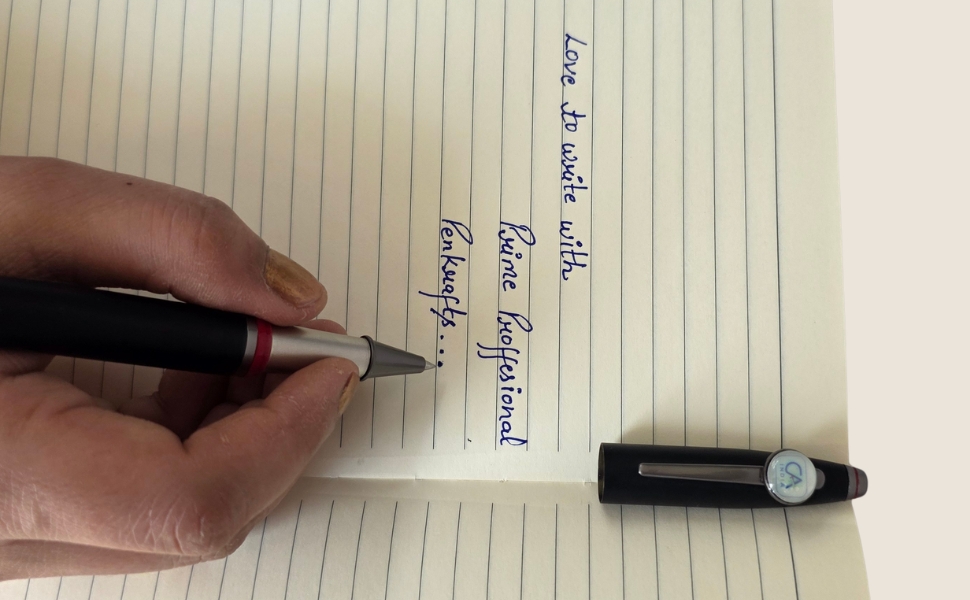 Love to write with
Prime Proffesional
Penkrafts...
CA